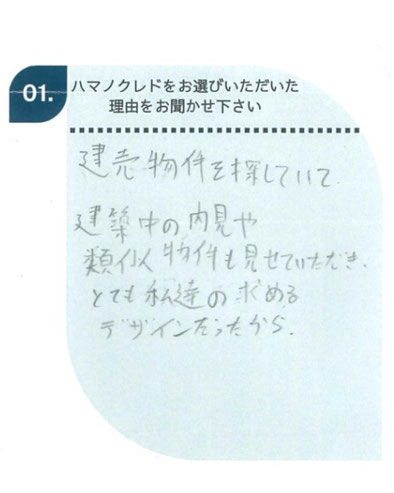 01.
ハマノクレドをお選びいただいた
理由をお聞かせ下さい
建売物件を探していて
建築中の内見や
類似物件も見せていただき、
とても私達の求める
デザインだったから。